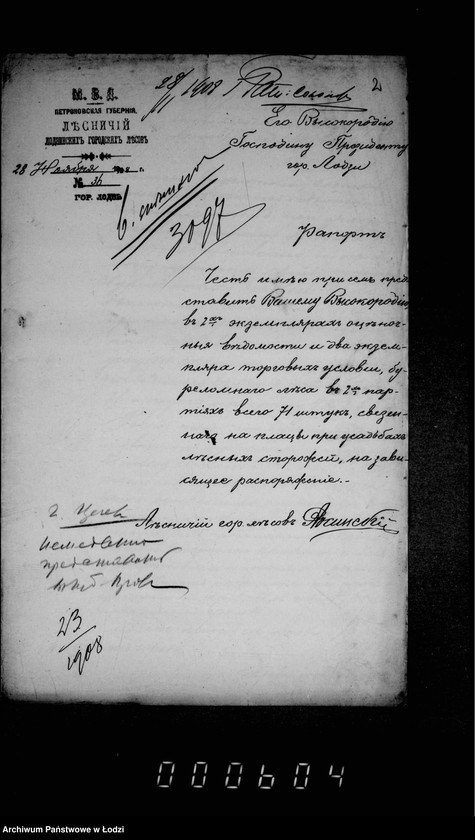 28/XI 1908
2
М. В. Д.
ПЕТРОКОВСКАЯ ГУБЕРНІЯ.
ЛѢСНИЧІЙ
ЛОДЗИНСКИХЪ ГОРОДСКИХЪ ЛѢСОВЪ
28 Ноября 1908 г.
№ 36
ГОР. ЛОДЗЬ
Его Высокородію
Господину Президенту
гор. Лодзи
3097
Рапортъ
Честь имѣю при семъ пред
ставить Вашему Высокородію
въ 2хъ экземплярахъ оцѣноч-
ныя вѣдомости и два экзем-
пляра торговыхъ условій, бу-
реломнаго лѣса въ 2хъ пар-
тіяхъ всего 71 штукъ, свезен-
наго на плацы при усадьбахъ
лѣсныхъ сторожей, на зави-
сящее распоряженіе.-
Лѣсничій гор. лѣсовъ
23/1908
000604
Archiwum Państwowe w Łodzi